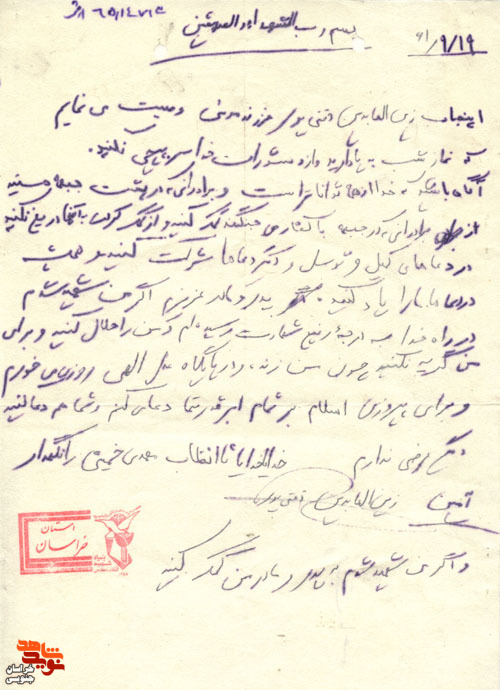 بسم رب الشهداء و الصدیقین
۶۱/۹/۱۹
اینجانب زین العابدین فرزند وصیت می نمایم
که نماز شب به پا دارید و از دستورات خدا سرپیچی نکنید.
آگاه باشید که خدا از همه تواناتر است و برادرانی که در پشت جبهه هستید
از برادرانی که در جبهه با کفار می جنگند کمک کنید و از کمک کردن به آنها دریغ نکنید
در دعاهای کمیل و توسل و دیگر دعاها شرکت کنید و همیشه
در دعا ما را یاد کنید. پدر و مادر عزیزم اگر من شهید شدم
در راه خدا به درجه رفیع شهادت رسیده ام و من را حلال کنید و برای
من گریه نکنید چون من زنده و در پایگاه عدل الهی روزی می خورم
و برای پیروزی اسلام بر تمام ابرقدرتها دعا می کنم و شما هم دعا کنید
دیگر عرضی ندارم خدایا خدایا تا انقلاب مهدی خمینی را نگهدار
آمین زین العابدین
و اگر من شهید شدم به پدر و مادر من کمک کنید
استان
خراسان
بنیاد شهید
نوید شاهد
خراسان جنوبی